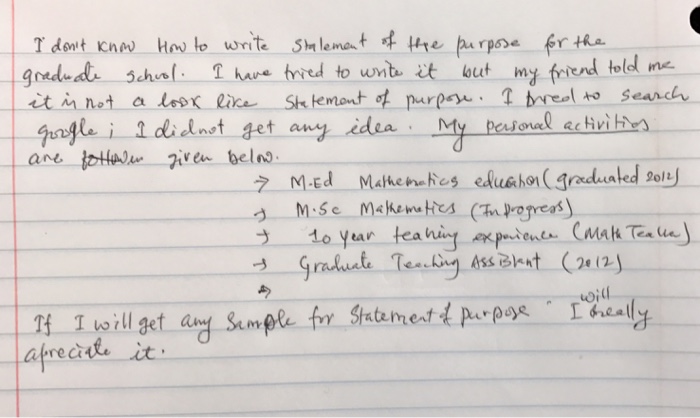 I don't know How to write Statement of the purpose for the
graduate school. I have tried to write it but my friend told me
it is not a look like Statement of purpose. I treed to search
google; I didnot get any idea. My personal activities
are given below.
→ M.Ed Mathematics education (graduated 2012)
→ M.Sc Mathematics (In progress)
→ 10 year teahing experience (Math Teacher)
→ Graduate Teaching Assistant (2012)
→
If I will get any Sample for Statement of purpose I will really
apreciate it.